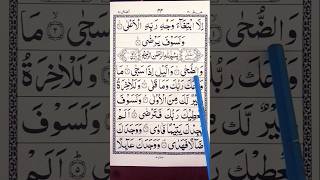 اِلَّا ابْتِغَآءَ وَجْهِ رَبِّهِ الْاَعْلٰى
وَلَسَوْفَ يَرْضٰى
وَالضُّحٰى وَالَّيْلِ اِذَا سَجٰى مَا
وَدَّعَكَ رَبُّكَ وَمَا قَلٰى وَلَلْاٰخِرَةُ
خَيْرٌ لَّكَ مِنَ الْاُوْلٰى وَلَسَوْفَ
يُعْطِيْكَ رَبُّكَ فَتَرْضٰى اَلَمْ
يَجِدْكَ يَتِيْمًا فَاٰوٰى وَوَجَدَكَ
ضَآلًّا فَهَدٰى وَوَجَدَكَ عَآئِلًا